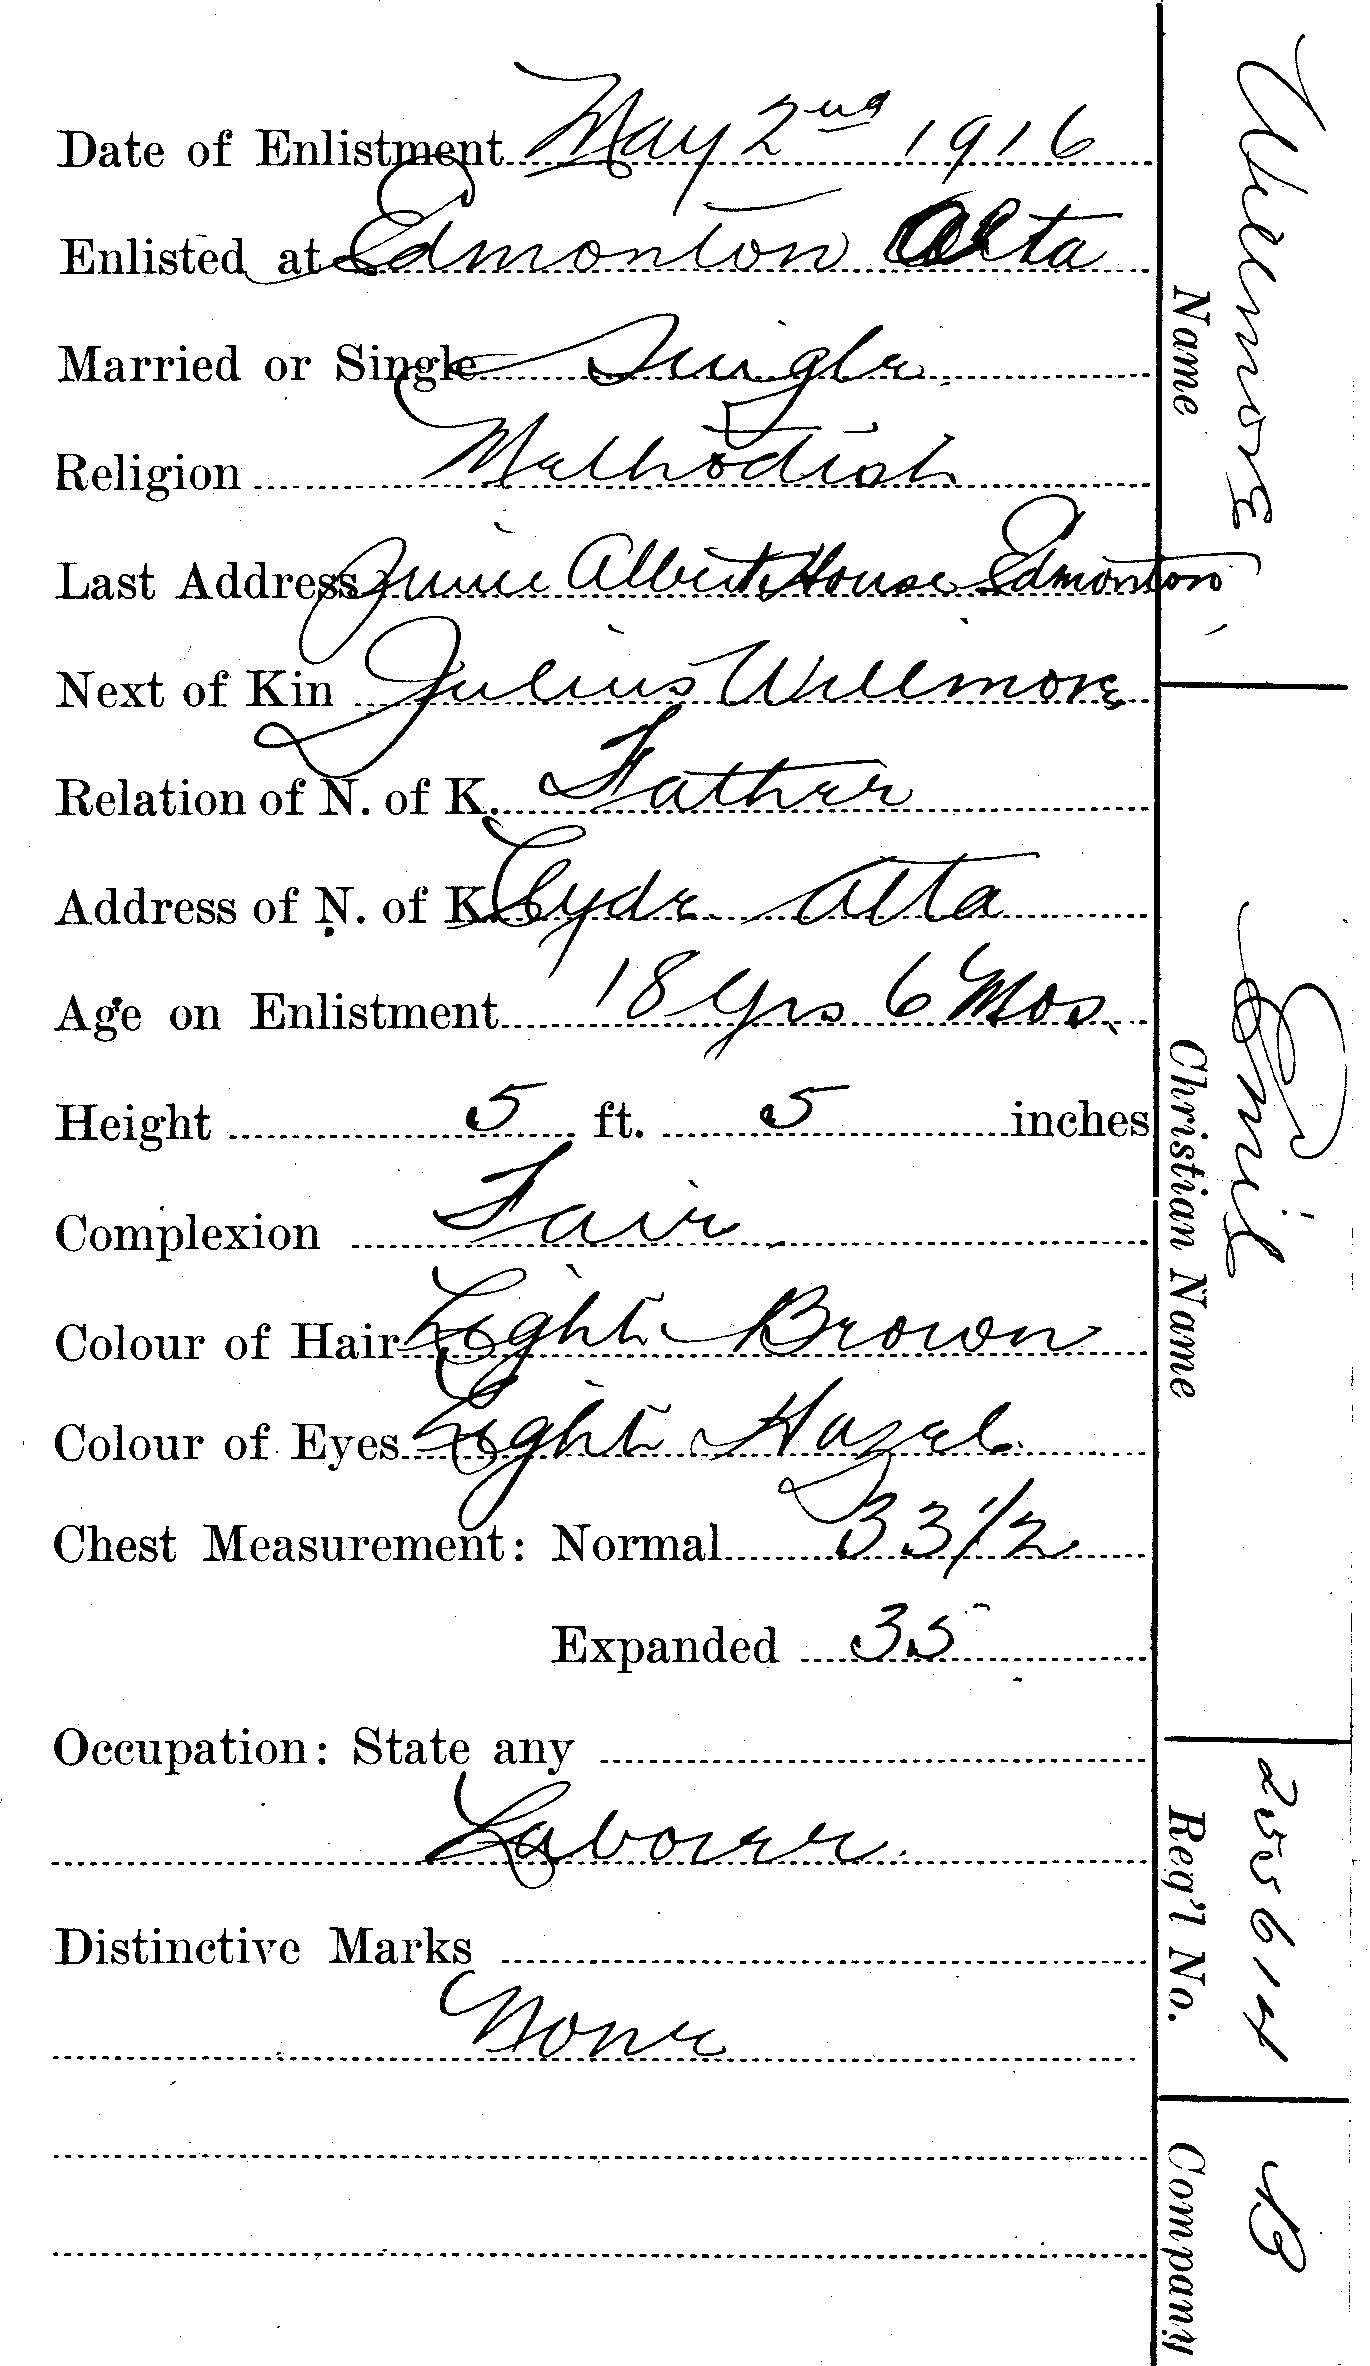 Date of Enlistment May 2nd 1916
Enlisted at Edmonton Alta
Married or Single Single
Religion Methodist
Last Address Prince Albert House Edmonton
Next of Kin Julius Willmore
Relation of N. of K. Father
Address of N. of K. Clyde Alta
Age on Enlistment 18 yrs 6 Mos.
Height 5 ft. 5 inches
Complexion Fair
Colour of Hair Light Brown
Colour of Eyes Light Hazel
Chest Measurement: Normal 33 1/2
Expanded 35
Occupation: State any
Labourer.
Distinctive Marks
None
Name Willmore
Christian Name Emil
Reg'l No. 255614
Company B